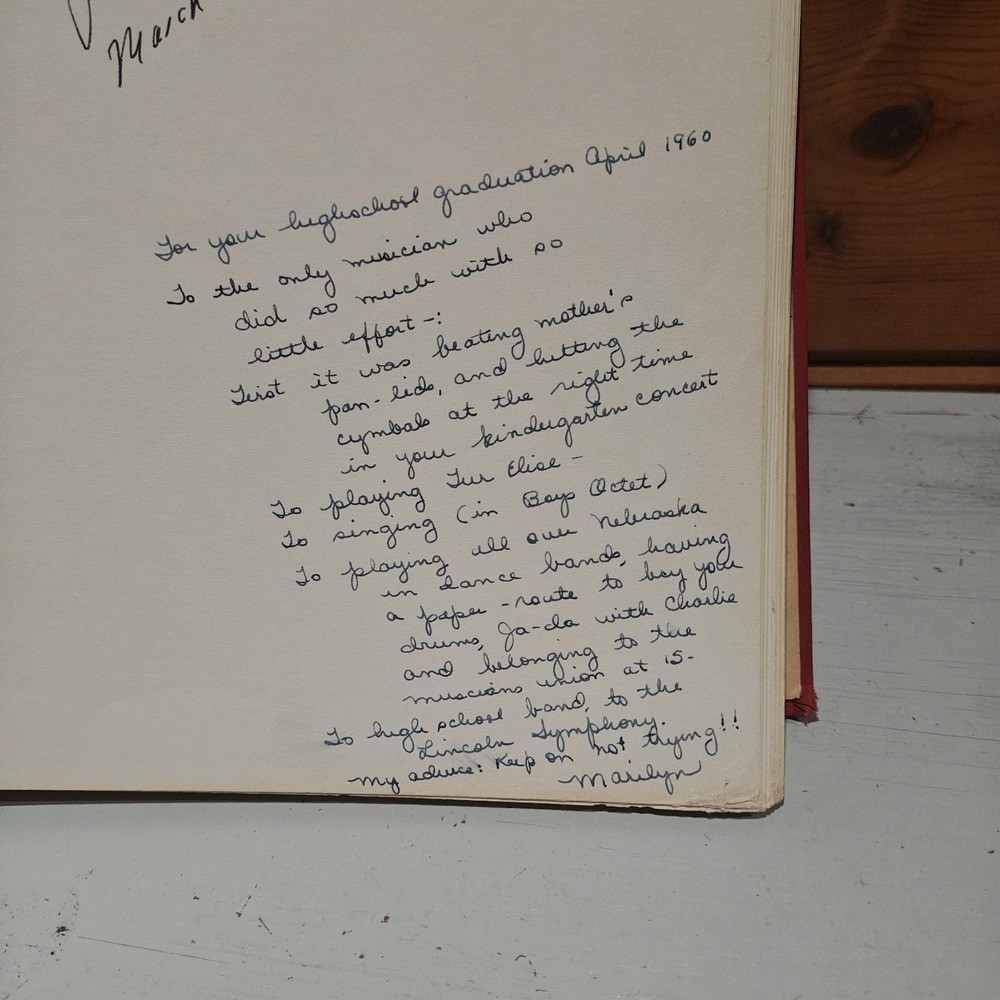 March
For your highschool graduation April 1960
To the only musician who
did so much with so
little effort-:
First it was beating mother's
pan-lids, and hitting the
cymbals at the right time
in your kindergarten concert
To playing Fur Elise -
To singing (in Boys Octet)
To playing all over Nebraska
in dance bands, having
a paper-route to buy your
drums, Ja-da with Charlie
and belonging to the
muscians union at 15-
To high school band, to the
Lincoln Symphony.
My advice: Keep on not trying!!
Marilyn